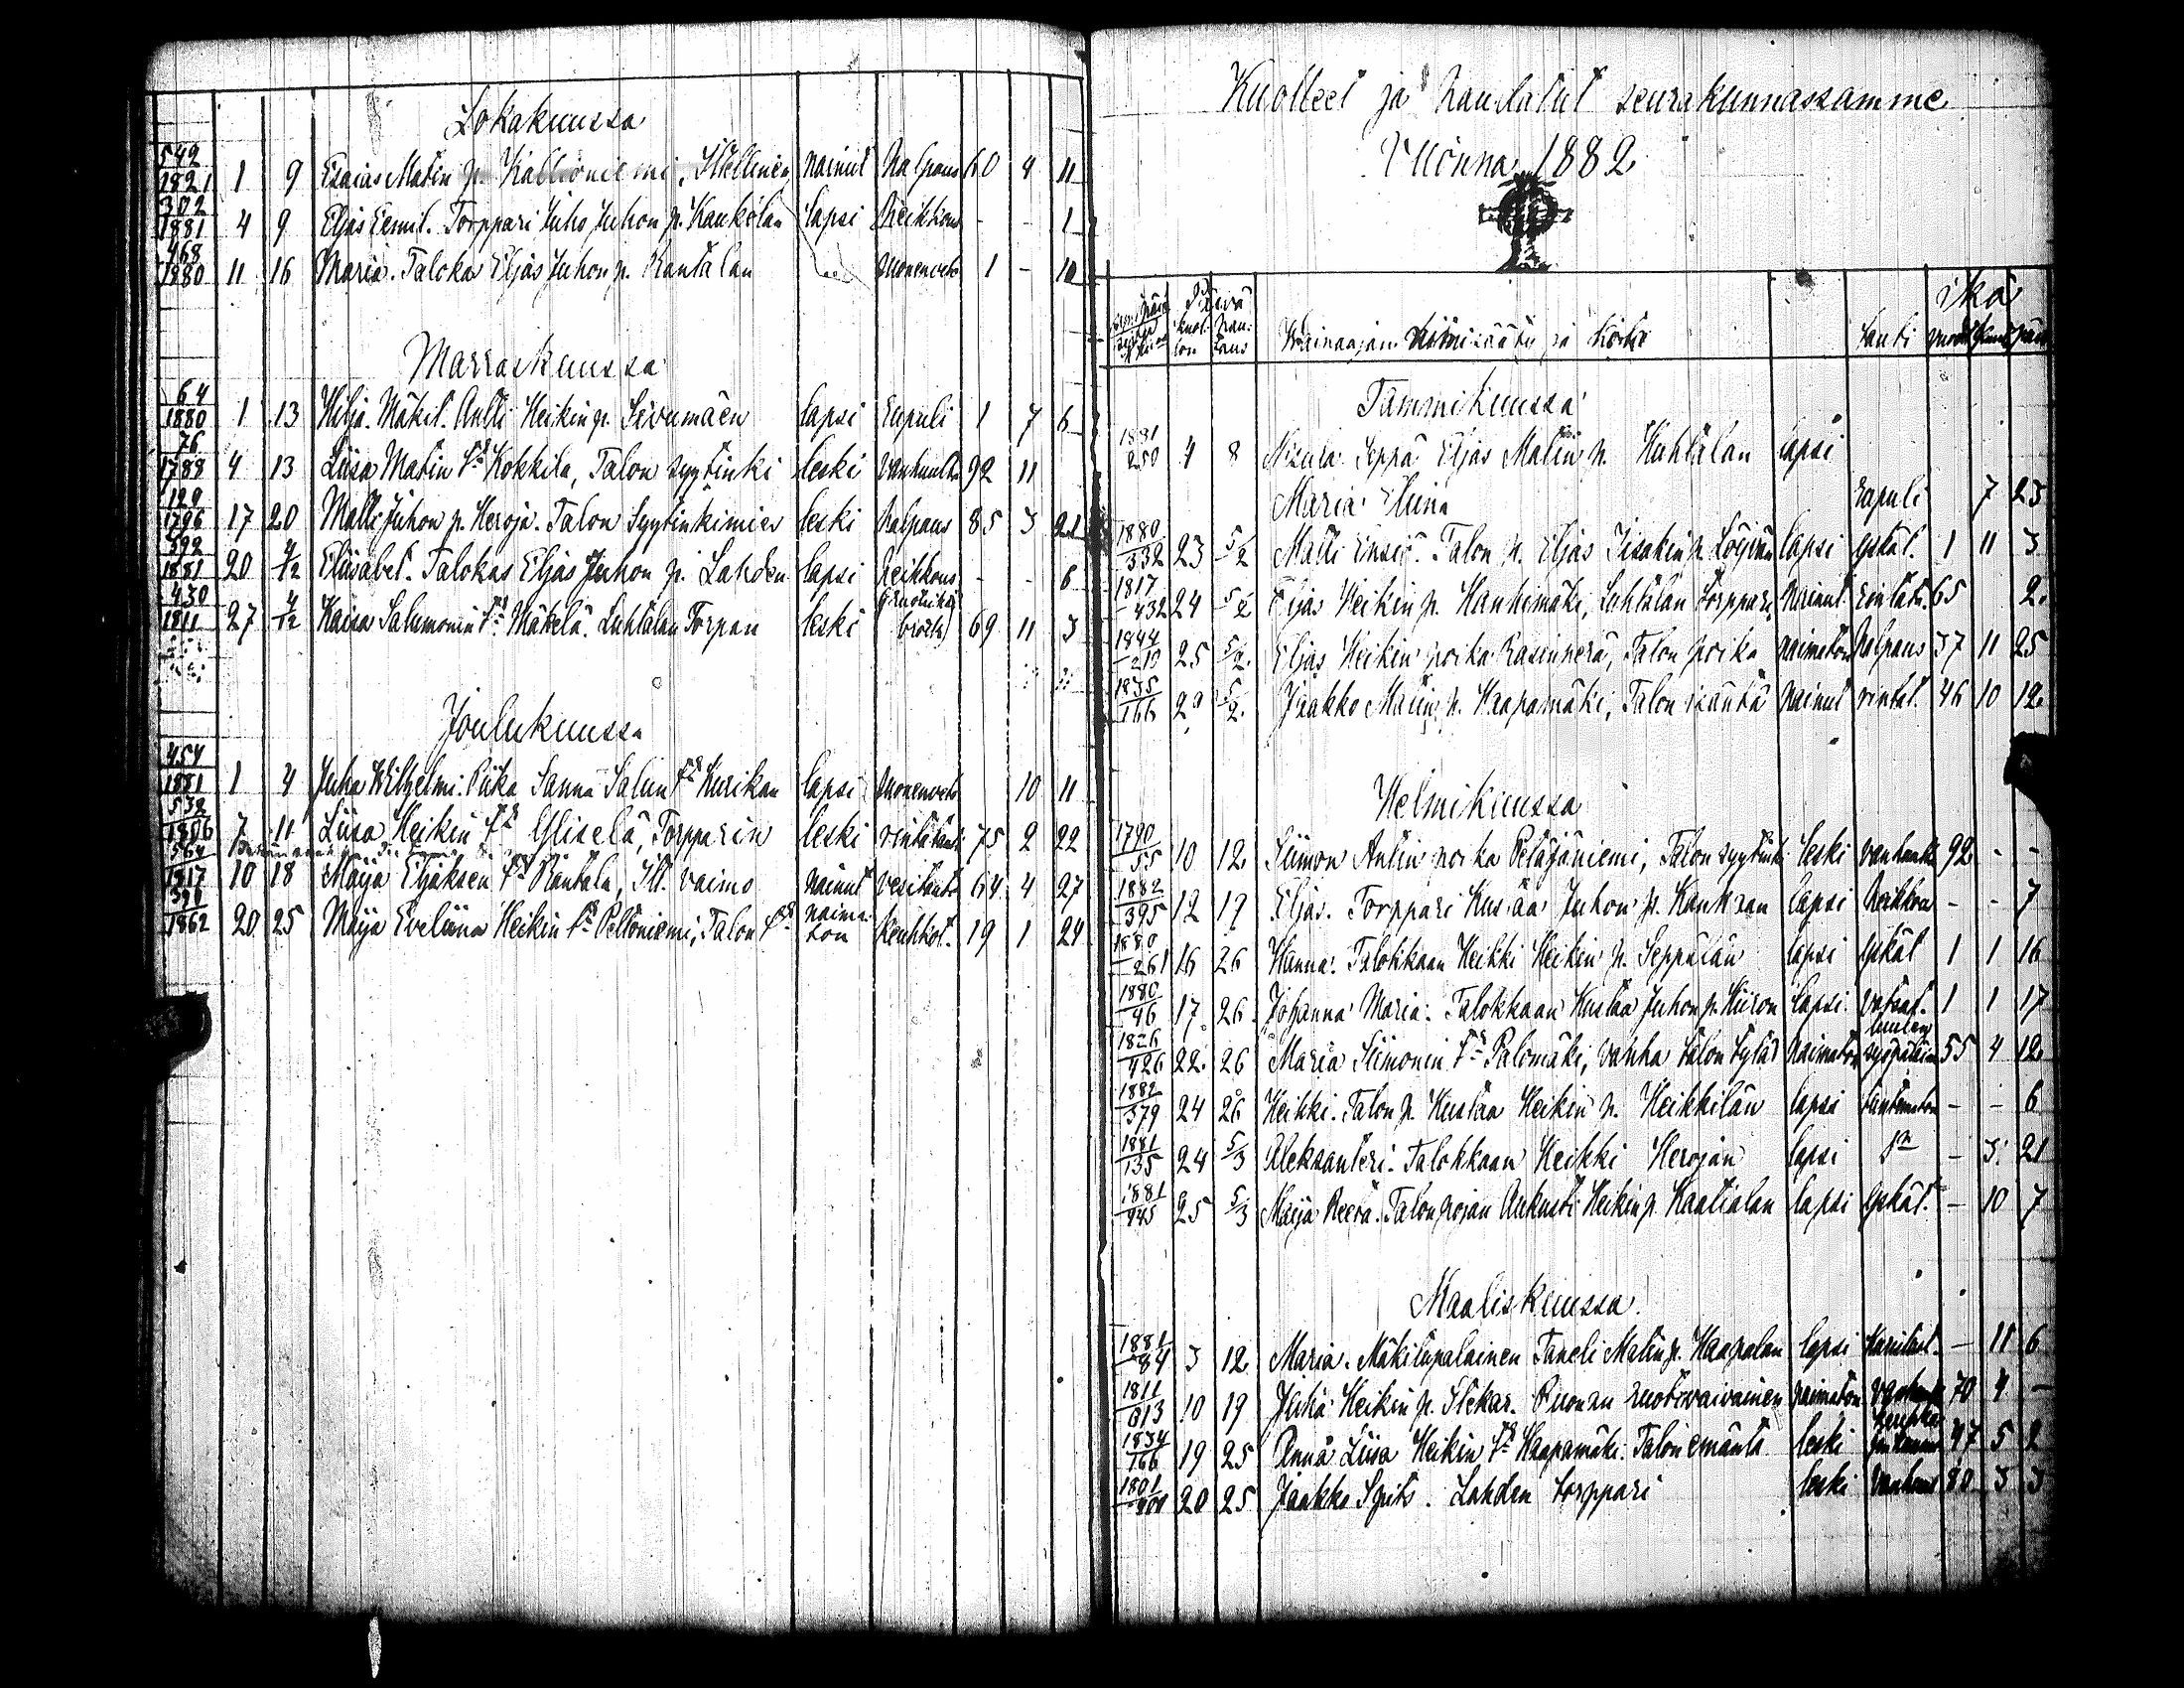 Lokakuussa
542
1821 1 9 Esaias Matin p. Kallioniemi, Itellinen nainut halpaus 60 4 11
302
1881 4 9 Eljas Eemil. Torppari Juho Juhon p. Kankolan lapsi heikkous - - 1
468
1880 11 16 Maria. Taloka Eljas Juhon p. Rantalan 1 - 10
Marraskuussa
64
1880 1 13 Hilja. Mäkit. Antti Heikin p. Sivumäen lapsi 1 7 6
76
1788 4 13 Liisa Matin Kokkila, Talon syytinki leski 92 11
129
1796 17 20 Matti Juhon p. Heroja. Talon Syytinkimies leski halpaus 85 3 21
392
1881 20 4/12 Eliisabet. Talokas Eljas Juhon p. Lahden lapsi heikkous - - 6
430
1811 27 4/12 Kaisa Salumonin Mäkelä. Luhtalan Torpan leski 69 11 3
Joulukuussa
454
1881 1 4 Juha Wilhelmi. Piika Sanna Salun Kurikan lapsi 10 11
532
1806 7 11 Liisa Heikin Yliselä, Torpparin leski rintataut 75 2 22
564
1817 10 18 Maija Eljaksen Rantala, Itt. vaimo nainut vesitauti 64 4 27
1862 20 25 Maija Eveliina Heikin Peltoniemi, Talon naima-
ton keuhkot. 19 1 24
Kuolleet ja haudatut seurakunnassamme
Vuonna 1882
Ikä
Päivä
kuol- hau-
lon taus Wainaajan nimi sääty ja koto tauti vuod. kuuk. päiv.
Tammikuussa
1881
250 4 8 Seppä Eljas Matin p. Huhtalan lapsi
Maria Eliina 7 23
1880
332 23 5/2 Matti Ensiö. Talon p. Eljas Iisakin p. lapsi yskät. 1 11 3
1817
432 24 5/2 Eljas Heikin p. Hanhimäki, Luhtalan Torppari nainut rintat. 65 2
1844
210 25 5/2 Eljas Heikin poika Rasinperä, Talon poika naimaton halpaus 37 11 25
1835
166 29 5/2 Jaakko Matin p. Haapamäki, Talon isäntä nainut rintat. 46 10 12
Helmikuussa
1790
55 10 12 Siimon Antin poika Petäjäniemi, Talon syytink. leski 92 - -
1882
395 12 19 Eljas. Torppari Kustaa Juhon p. lapsi heikkous - - 7
1880
261 16 26 Hanna. Talokkaan Heikki Heikin p. Seppälän lapsi yskät 1 1 16
1880
46 17 26 Johanna Maria. Talokkaan Kustaa Juhon p. Hiiron lapsi 1 1 17
1826
426 22 26 Maria Siimonin Palomäki, vanha talon tytär naimaton 55 4 12
1882
379 24 26 Heikki. Talon p. Kustaa Heikin p. Heikkilän lapsi tuntematon - - 6
1881
135 24 5/3 Aleksanteri. Talokkaan Heikki Herojan lapsi - 3 21
1881
445 25 5/3 Maija Reeta. Talon pojan Aukusti Heikin p. Kaatialan lapsi yskät. - 10 7
Maaliskuussa
1881
84 3 12 Maria. Mäkitupalainen Taneli Matin p. Haapalan lapsi - 11 6
1811
613 10 19 Juha Heikin p. ruotivaivainen naimaton 70 4 -
1834
166 19 25 Anna Liisa Heikin Haapamäki. Talon emäntä leski 47 5 2
1801
20 25 Jaakko Spits. Lahden torppari leski vanhuus 80 3 3